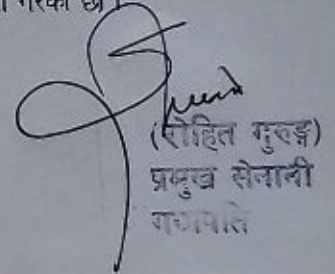 गरेका छौं।
(रोहित गुरुङ्ग)
प्रमुख सेनानी
गणपति